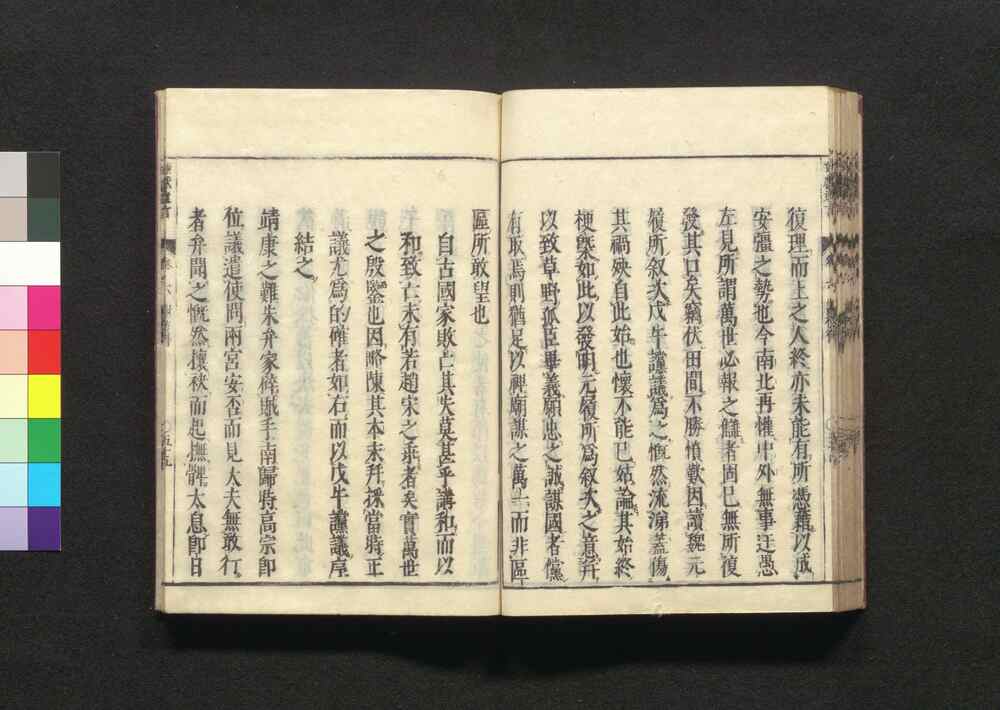 復理而上之人終亦未能有所憑藉以成
安彊之勢也今南北再懽中外無事迂愚
左見所謂萬世必報之讎者固已無所復
發其口矣竊伏田間不勝憤歎因讀魏元
履所叙次戊午讜議爲之慨然流涕蓋傷
其禍殃自此始也懷不能已姑論其始終
梗槩如此以發明元履所爲叙次之意幷
以致草野孤臣畢義願忠之誠謀國者儻
有取焉則猶足以裨廟謀之萬一而非區
區所敢望也
自古國家敗亡其失莫甚乎講和而以
和致亡未有若趙宋之
者矣實萬世
之殷鑒也因略陳其本末幷採當時正
議尤爲的確者如右而以戊午讜議序
結之
靖康之難朱弁家碎賊手南歸時高宗即
位議遣使問兩宮安否而見大夫無敢行
者弁聞之慨然攘袂而起撫髀太息即日
五五